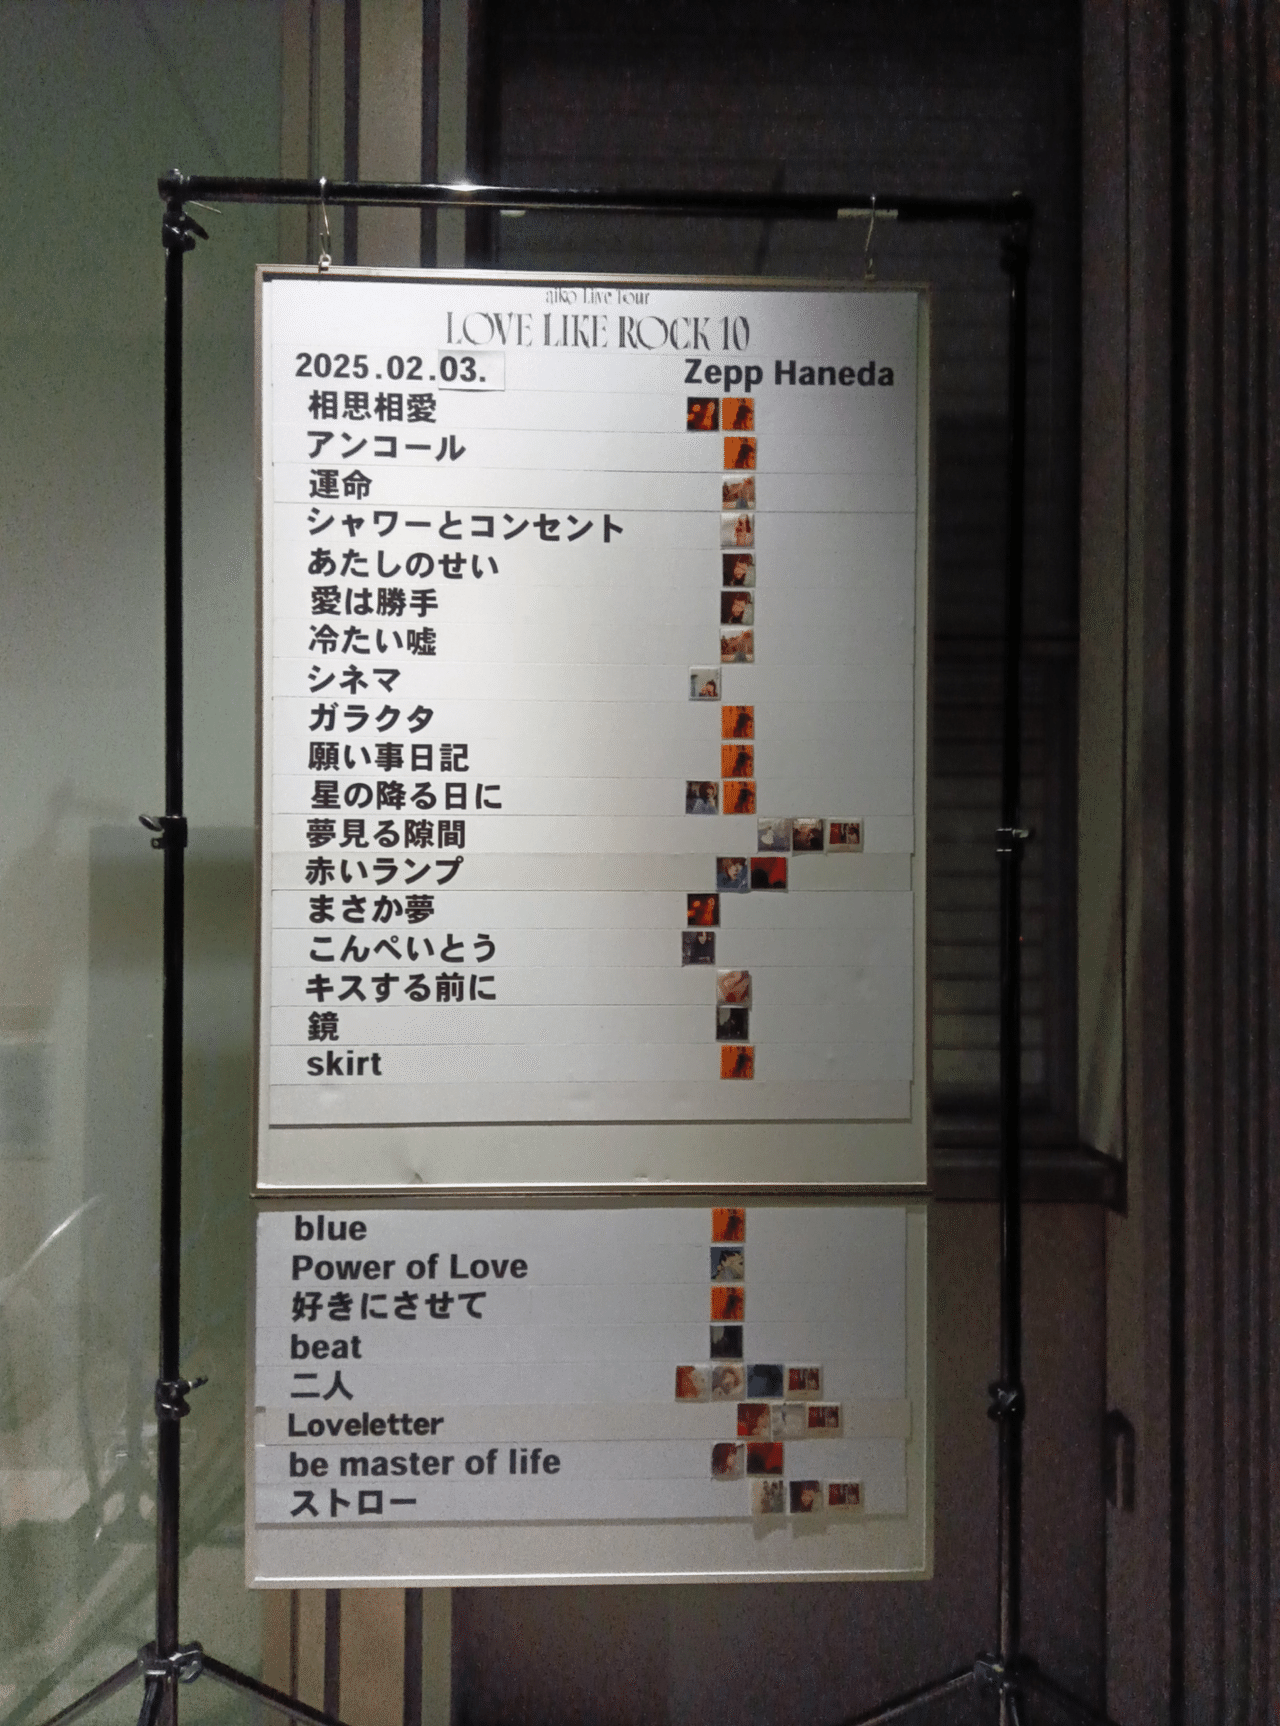 aiko Live Tour
LOVE LIKE ROCK 10
2025.02.03. Zepp Haneda
相思相愛
アンコール
運命
シャワーとコンセント
あたしのせい
愛は勝手
冷たい嘘
シネマ
ガラクタ
願い事日記
星の降る日に
夢見る隙間
赤いランプ
まさか夢
こんぺいとう
キスする前に
鏡
skirt
blue
Power of Love
好きにさせて
beat
二人
Loveletter
be master of life
ストロー